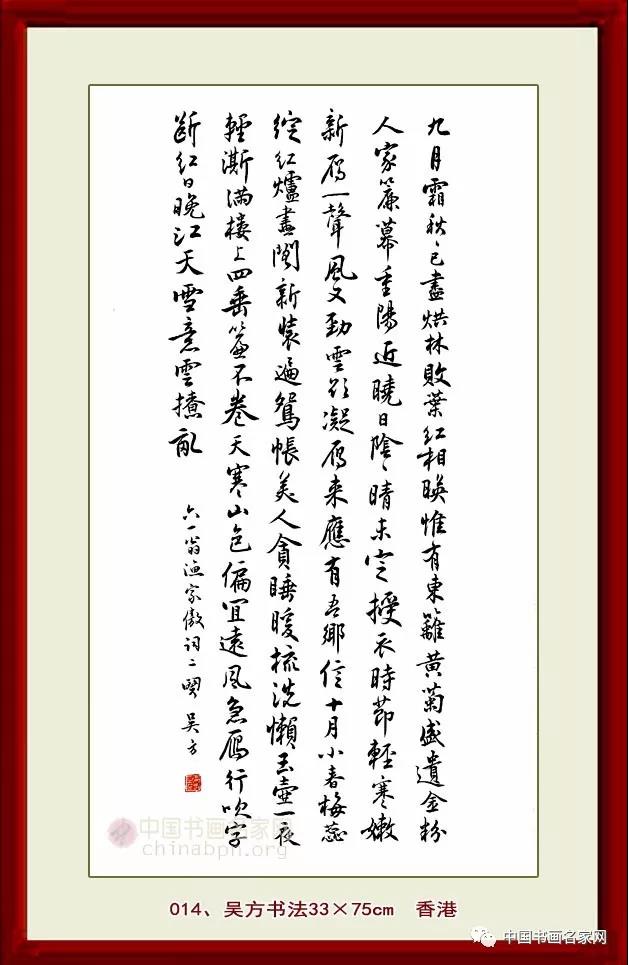 九月霜秋〻已盡烘林敗葉紅相暎惟有東籬黄菊盛遺金粉
人家簾幕重陽近曉日陰〻晴未定授衣時節輕寒嫩
新雁一聲風又勁雲欲凝雁来應有吾鄉信十月小春梅蕊
綻紅爐畫閣新裝遍鴛帳美人貪睡暖梳洗懶玉壺一夜
輕澌滿樓上四垂簾不卷天寒山色偏宜遠風急雁行吹字
斷紅日晚江天雪意雲撩亂
六一翁漁家傲詞二闋 吴方
中国书画名家网
chinabph.org
014、吴方书法33×75cm 香港
中国书画名家网